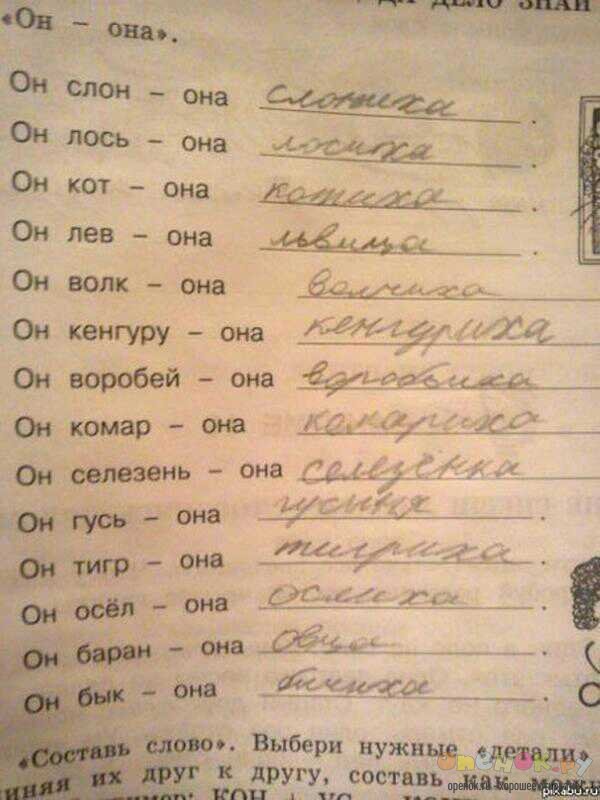 ДА ДЕЛО ЗНАЙ
«Он – она».
Он слон – она слониха.
Он лось – она лосиха.
Он кот – она котиха.
Он лев – она львица.
Он волк – она волчиха
Он кенгуру – она кенгуриха
Он воробей – она воробьиха
Он комар – она комариха
Он селезень – она селезёнка
Он гусь – она гусыня.
Он тигр – она тигриха.
Он осёл – она ослиха.
Он баран – она овца.
Он бык – она бычиха.
«Составь слово». Выбери нужные «детали»
няя их друг к другу, составь как можн
КОН + УС
openok.ru - хорошее
pikabu.ru